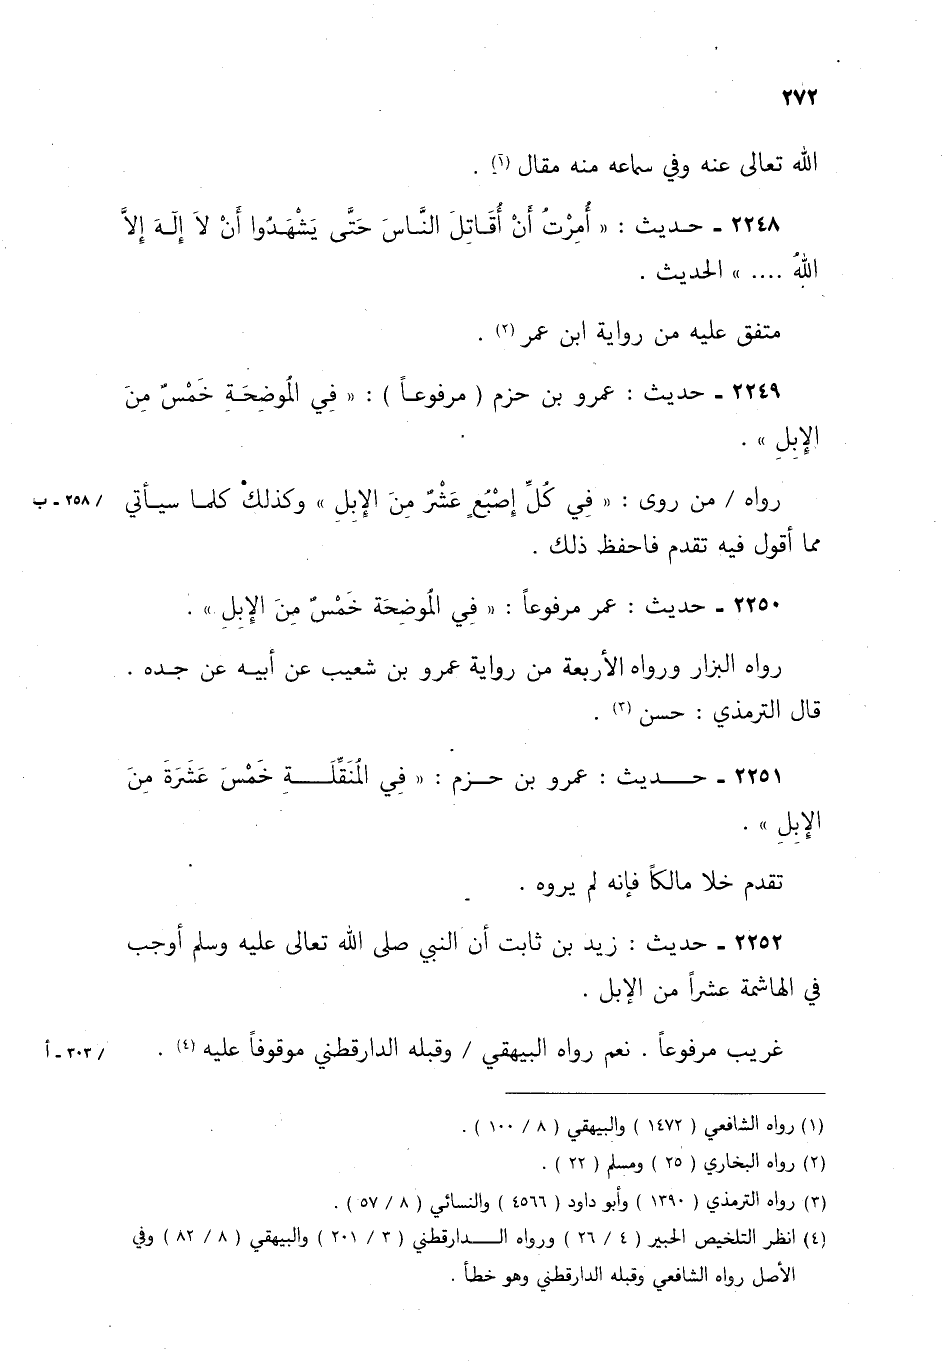 ٢٧٢
الله تعالى عنه وفي سماعه منه مقال (١) .
٢٢٤٨ ـ حـديث : « أُمِرْتُ أَنْ أُقَـاتِلَ النَّـاسَ حَتَّى يَشْهَـدُوا أَنْ لاَ إِلَـهَ إِلاَّ
اللهُ .... » الحديث .
متفق عليه من رواية ابن عمر (٢) .
٢٢٤٩ ـ حديث : عمرو بن حزم ( مرفوعـاً ) : « فِي الْمُوضِحَـةِ خَمْسٌ مِنَ
الإِبِلِ » .
رواه / من روى : « فِي كُلِّ إِصْبُعٍ عَشْرٌ مِنَ الإِبِلِ » وكذلك كلمـا سيـأتي / ٢٥٨ ـ ب
مما أقول فيه تقدم فاحفظ ذلك .
٢٢٥٠ ـ حديث : عمر مرفوعاً : « فِي الْمُوضِحَة خَمْسٌ مِنَ الإِبِلِ » .
رواه البزار ورواه الأربعة من رواية عمرو بن شعيب عن أبيـه عن جـده .
قال الترمذي : حسن (٣) .
٢٢٥١ ـ حـــديث : عمرو بن حـزم : « فِي الْمُنَقِّلَـــةِ خَمْسَ عَشَرَةَ مِنَ
الإِبِلِ » .
تقدم خلا مالكاً فإنه لم يروه .
٢٢٥٢ ـ حديث : زيد بن ثابت أن النبي صلى الله تعالى عليه وسلم أوجب
في الهاشمة عشراً من الإبل .
غريب مرفوعاً . نعم رواه البيهقي / وقبله الدارقطني موقوفاً عليه (٤) . / ٣٠٣ ـ أ
(١) رواه الشافعي ( ١٤٧٢ ) والبيهقي ( ٨ / ١٠٠ ) .
(٢) رواه البخاري ( ٢٥ ) ومسلم ( ٢٢ ) .
(٣) رواه الترمذي ( ١٣٩٠ ) وأبو داود ( ٤٥٦٦ ) والنسائي ( ٨ / ٥٧ ) .
(٤) انظر التلخيص الحبير ( ٤ / ٢٦ ) ورواه الــدارقطني ( ٣ / ٢٠١ ) والبيهقي ( ٨ / ٨٢ ) وفي
الأصل رواه الشافعي وقبله الدارقطني وهو خطأ .